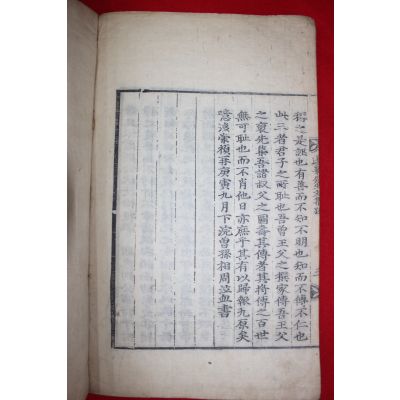 稱之是誣也有善而不知不明也知而不傳不仁也
此三者君子之所耻也吾曾王父之撰家傳吾王父
之裒先集吾諸叔父之圖壽其傳者其將傳之百世
無可耻也而今而後庶乎其有以歸報九原矣
噫
崇禎三庚寅九月下浣曾孫相周泣血書